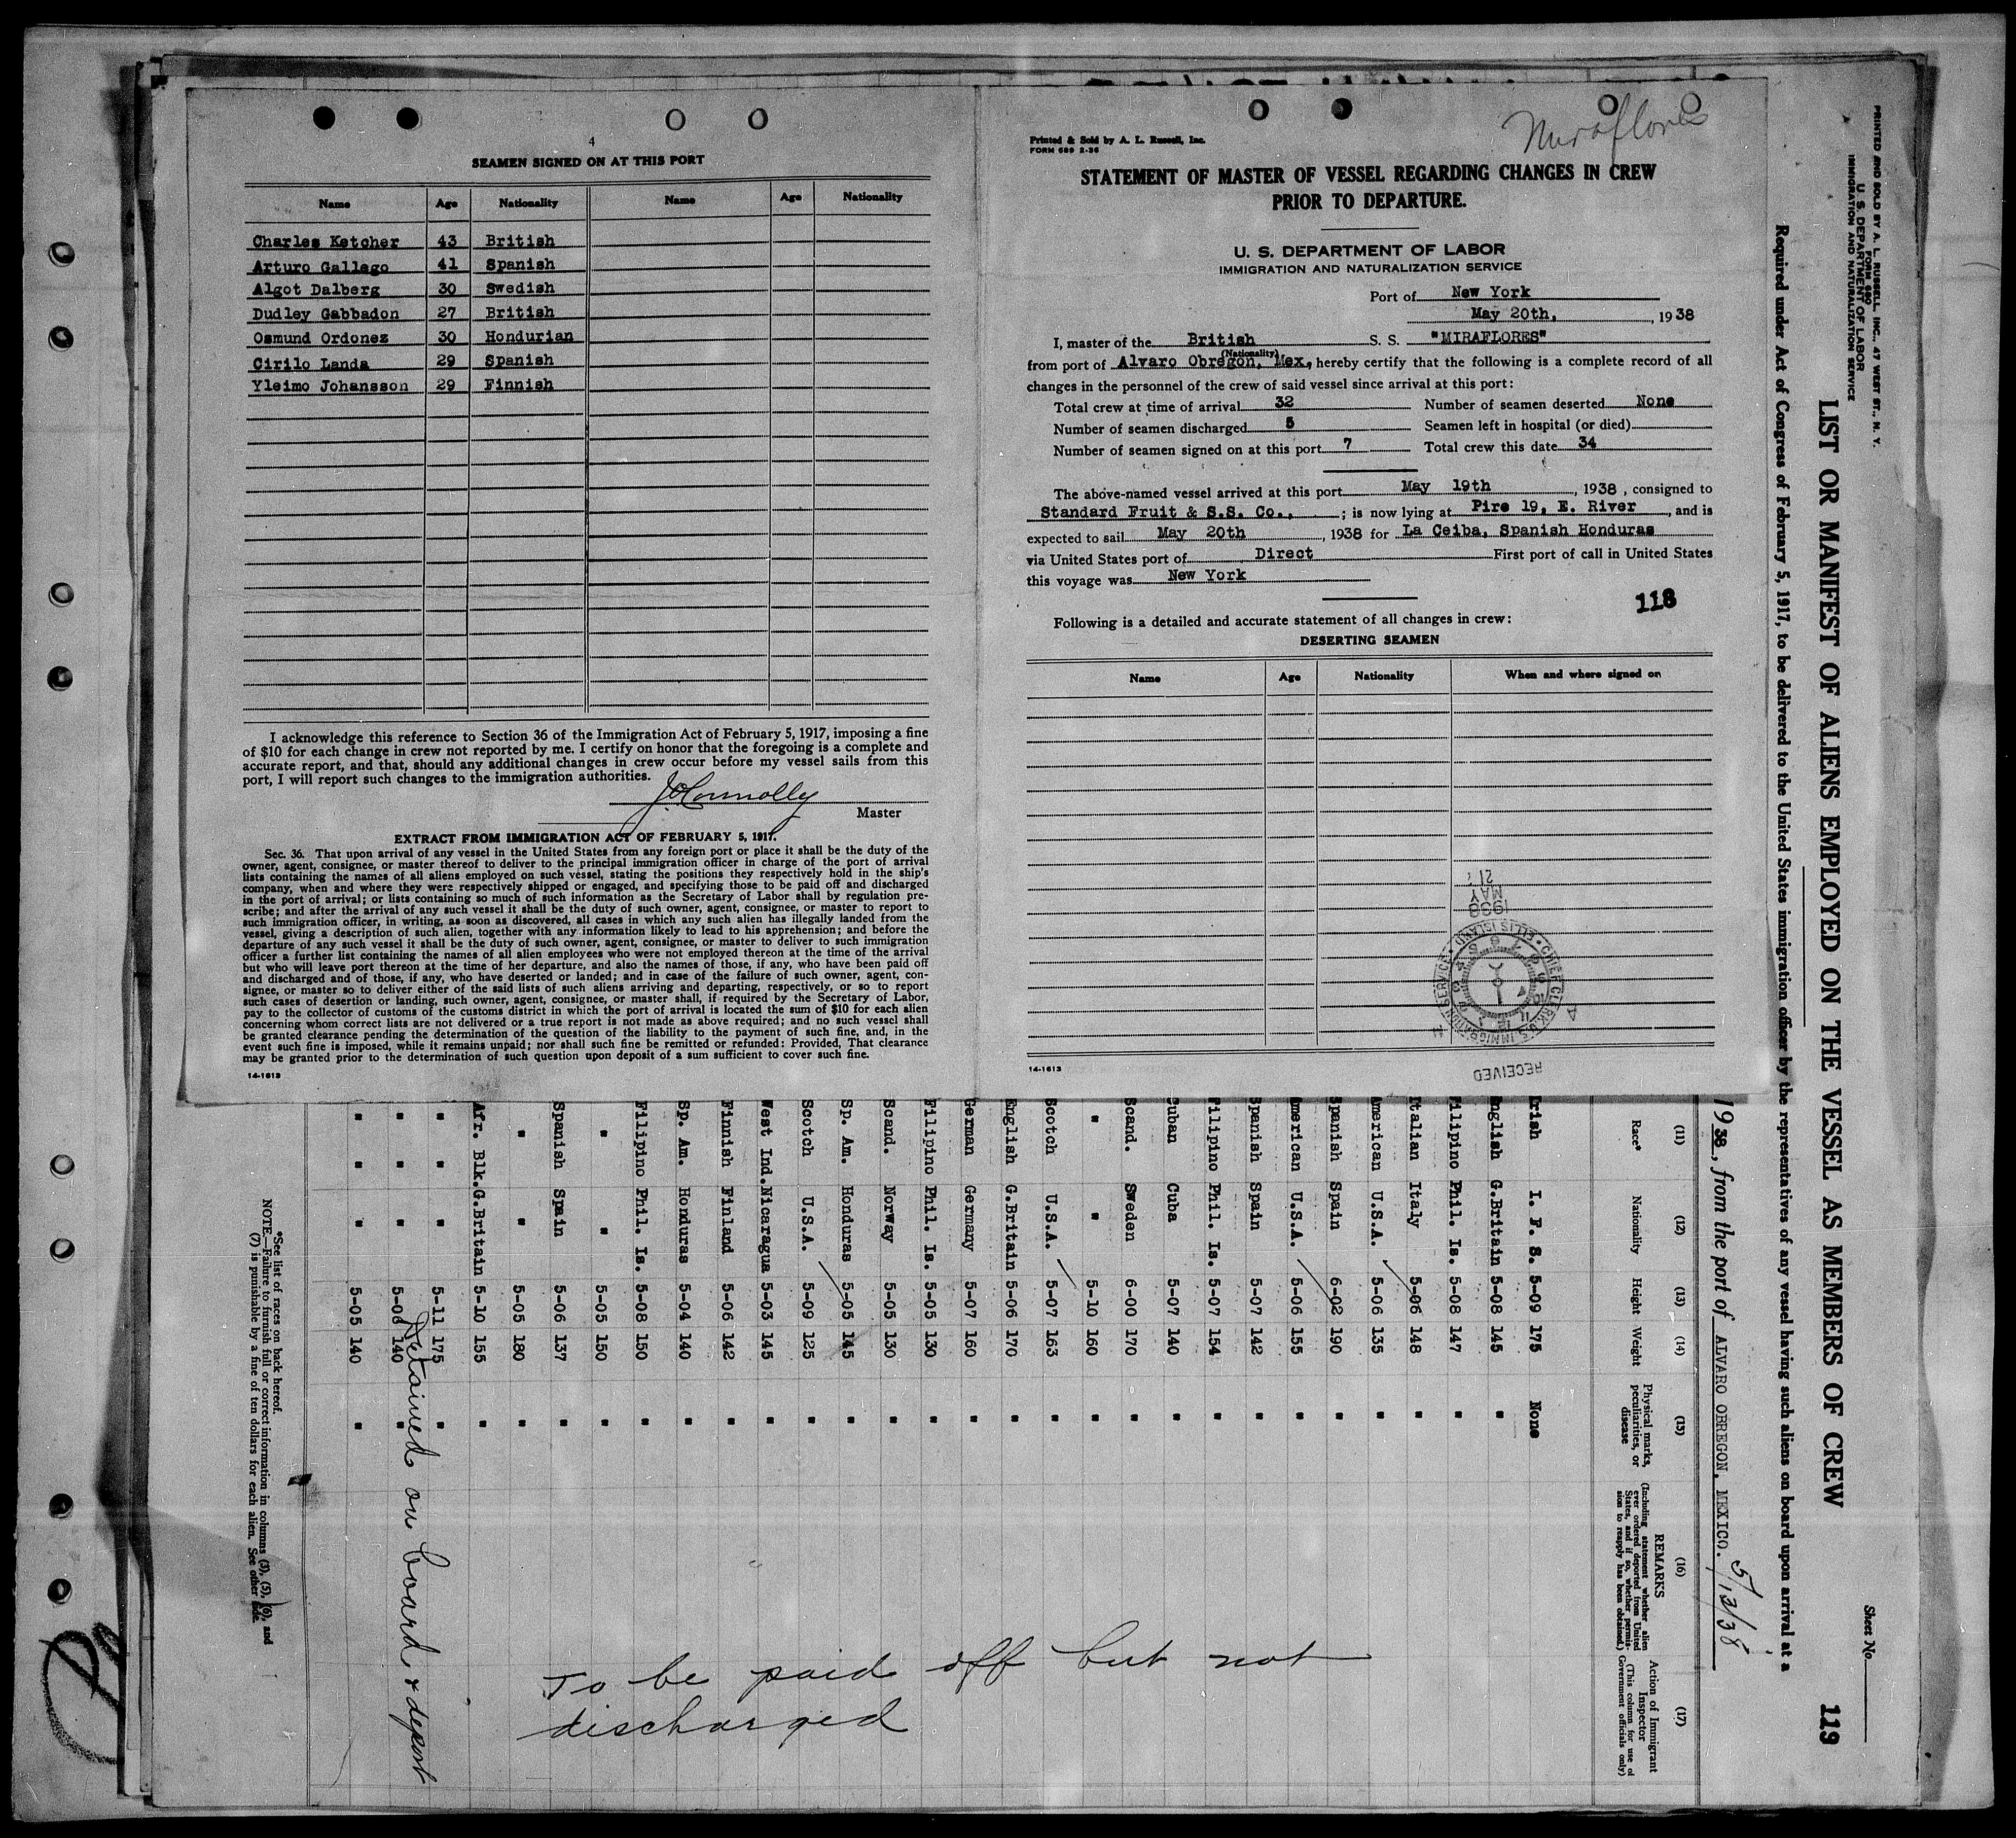 4
SEAMEN SIGNED ON AT THIS PORT
Name Age Nationality Name Age Nationality
Charles Ketcher 43 British
Arturo Gallego 41 Spanish
Algot Dalberg 30 Swedish
Dudley Gabbadon 27 British
Osmund Ordonez 30 Hondurian
Cirilo Landa 29 Spanish
Yleimo Johansson 29 Finnish
I acknowledge this reference to Section 36 of the Immigration Act of February 5, 1917, imposing a fine
of $10 for each change in crew not reported by me. I certify on honor that the foregoing is a complete and
accurate report, and that, should any additional changes in crew occur before my vessel sails from this
port, I will report such changes to the immigration authorities.
J. O'Connolly
Master
EXTRACT FROM IMMIGRATION ACT OF FEBRUARY 5, 1917.
Sec. 36. That upon arrival of any vessel in the United States from any foreign port or place it shall be the duty of the
owner, agent, consignee, or master thereof to deliver to the principal immigration officer in charge of the port of arrival
lists containing the names of all aliens employed on such vessel, stating the positions they respectively hold in the ship's
company, when and where they were respectively shipped or engaged, and specifying those to be paid off and discharged
in the port of arrival; or lists containing so much of such information as the Secretary of Labor shall by regulation pre-
scribe; and after the arrival of any such vessel it shall be the duty of such owner, agent, consignee, or master to report to
such immigration officer, in writing, as soon as discovered, all cases in which any such alien has illegally landed from the
vessel, giving a description of such alien, together with any information likely to lead to his apprehension; and before the
departure of any such vessel it shall be the duty of such owner, agent, consignee, or master to deliver to such immigration
officer a further list containing the names of all alien employees who were not employed thereon at the time of the arrival
but who will leave port thereon at the time of her departure, and also the names of those, if any, who have been paid off
and discharged and of those, if any, who have deserted or landed; and in case of the failure of such owner, agent, con-
signee, or master so to deliver either of the said lists of such aliens arriving and departing, respectively, or so to report
such cases of desertion or landing, such owner, agent, consignee, or master shall, if required by the Secretary of Labor,
pay to the collector of customs of the customs district in which the port of arrival is located the sum of $10 for each alien
concerning whom correct lists are not delivered or a true report is not made as above required; and no such vessel shall
be granted clearance pending the determination of the question of the liability to the payment of such fine, and, in the
event such fine is imposed, while it remains unpaid; nor shall such fine be remitted or refunded: Provided, That clearance
may be granted prior to the determination of such question upon deposit of a sum sufficient to cover such fine.
14-1613
Miraflores
Printed & Sold by A. L. Russell, Inc.
FORM 689 2-36
STATEMENT OF MASTER OF VESSEL REGARDING CHANGES IN CREW
PRIOR TO DEPARTURE.
U. S. DEPARTMENT OF LABOR
IMMIGRATION AND NATURALIZATION SERVICE
Port of New York
May 20th, , 1938
I, master of the British S. S. "MIRAFLORES"
(Nationality)
from port of Alvaro Obregon, Mex, hereby certify that the following is a complete record of all
changes in the personnel of the crew of said vessel since arrival at this port:
Total crew at time of arrival 32 Number of seamen deserted None
Number of seamen discharged 5 Seamen left in hospital (or died)
Number of seamen signed on at this port 7 Total crew this date 34
The above-named vessel arrived at this port May 19th , 1938 , consigned to
Standard Fruit & S.S. Co., ; is now lying at Pire 19, E. River , and is
expected to sail May 20th , 1938 for La Ceiba, Spanish Honduras
via United States port of Direct First port of call in United States
this voyage was New York
118
Following is a detailed and accurate statement of all changes in crew:
DESERTING SEAMEN
Name Age Nationality When and where signed on
1938
MAY
21
CHIEF CLERK U.S. IMMIGRATION SERVICE
ELLIS ISLAND
RECEIVED
14-1613
PRINTED AND SOLD BY A. L. RUSSELL, INC., 47 WEST ST., N. Y.
FORM 680
U. S. DEPARTMENT OF LABOR
IMMIGRATION AND NATURALIZATION SERVICE
Sheet No.
LIST OR MANIFEST OF ALIENS EMPLOYED ON THE VESSEL AS MEMBERS OF CREW
119
Required under Act of Congress of February 5, 1917, to be delivered to the United States immigration officer by the representatives of any vessel having such aliens on board upon arrival at a
1938, from the port of ALVARO OBREGON, MEXICO. 5/13/38
(11) (12) (13) (14) (15) (16) (17)
Race* Nationality Height Weight Physical marks, peculiarities, or disease REMARKS (Including statement whether alien ever ordered deported from United States, and if so, whether permission to reapply has been obtained.) Action of Immigrant Inspector (This column for use of Government officials only)
Irish I. F. S. 5-09 175 None
English G.Britain 5-08 145 "
Filipino Phil. Is. 5-08 147 "
Italian Italy 5-06 148 "
American U.S.A. 5-06 135 "
Spanish Spain 6-02 190 "
American U.S.A. 5-06 155 "
Spanish Spain 5-07 142 "
Filipino Phil. Is. 5-07 154 "
Cuban Cuba 5-07 140 "
Scand. Sweden 6-00 170 "
" " 5-10 160 "
Scotch U.S.A. 5-07 163 "
English G.Britain 5-06 170 "
German Germany 5-07 160 "
Filipino Phil. Is. 5-05 130 "
Scand. Norway 5-05 130 "
Sp. Am. Honduras 5-05 145 "
Scotch U.S.A. 5-09 125 "
West Ind. Nicaragua 5-03 145 "
Finnish Finland 5-06 142 "
Sp. Am. Honduras 5-04 140 "
Filipino Phil. Is. 5-08 150 "
" " 5-05 150 "
Spanish Spain 5-06 137 "
" " 5-05 180 "
Afr. Blk. G.Britain 5-10 155 "
" " " 5-11 175 "
" " " 5-08 140 "
" " " 5-05 140 "
Detained on board & deport
To be paid off but not
discharged
*See list of races on back hereof.
NOTE.—Failure to furnish full or correct information in columns (3), (5), (6), and
(7) is punishable by a fine of ten dollars for each alien. See other side.